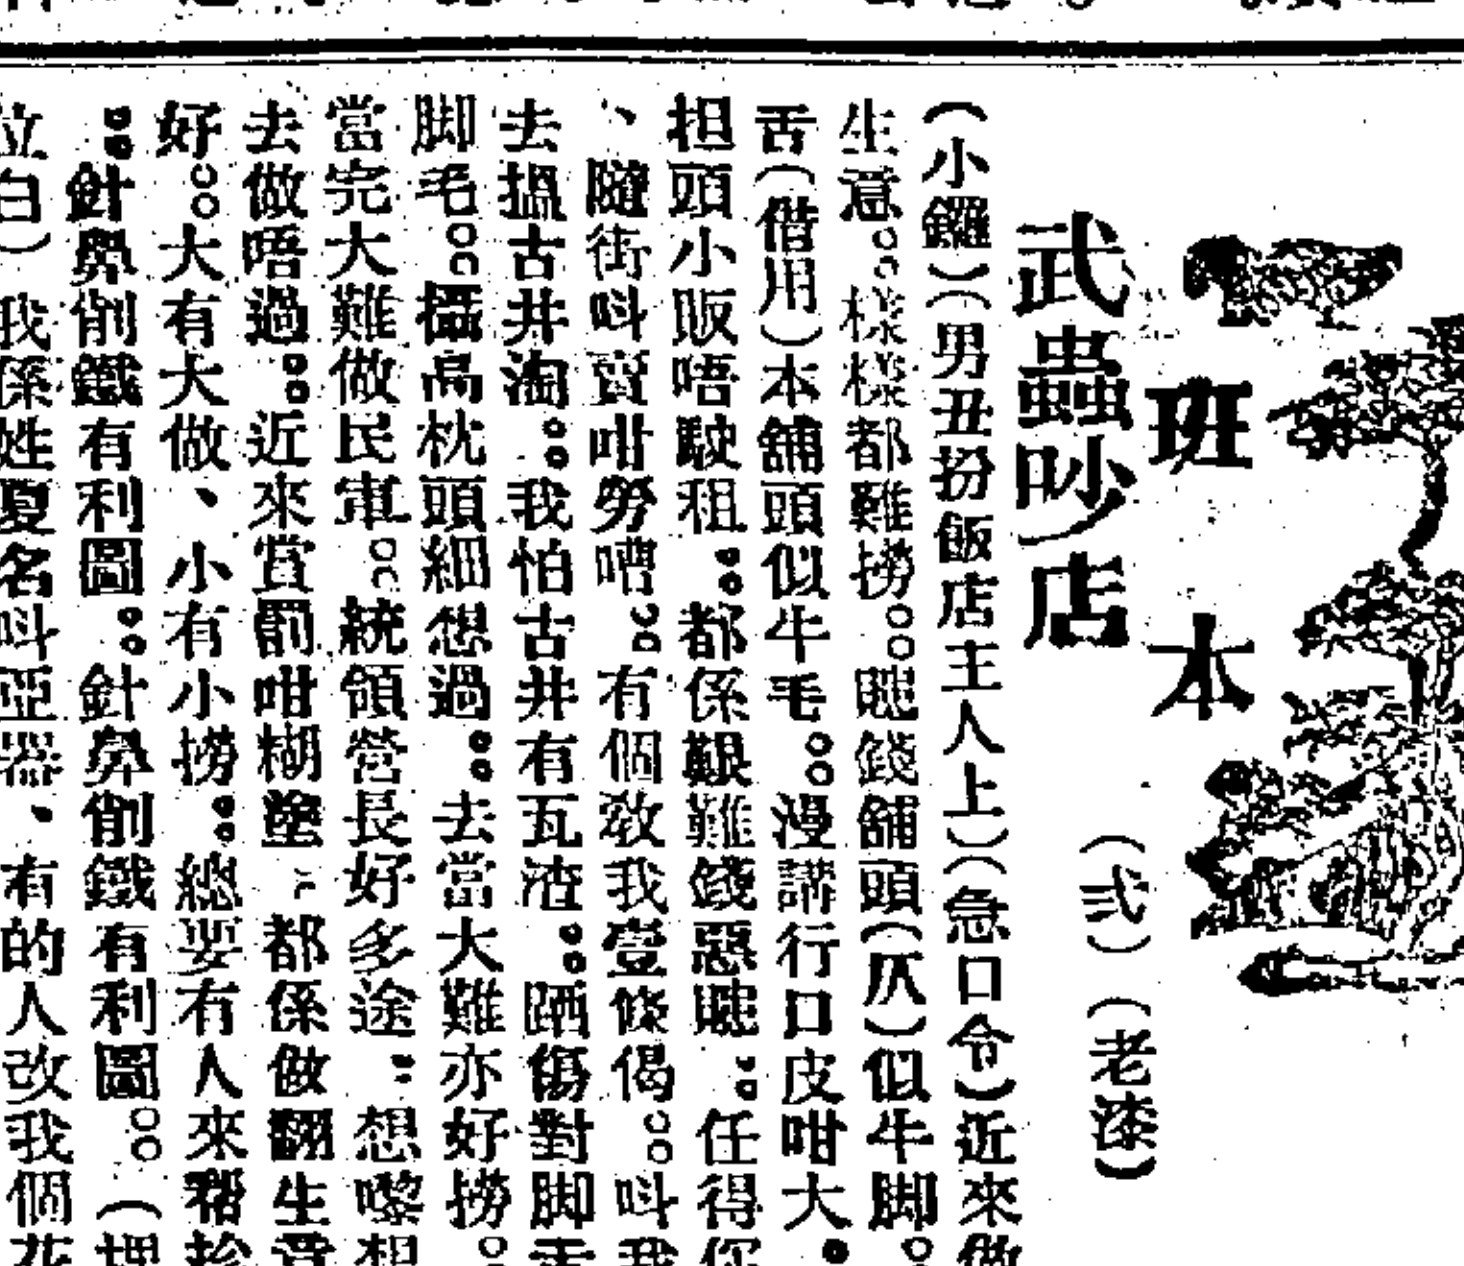 班本
武蟲吵店
(弍)(老漆)
(小鑼)(男丑扮飯店主人上)(急口令)近來做
生意。。樣樣都難撈。。賍錢舖頭(仄)似牛脚。
舌(借用)本舖頭似牛毛。。漫講行口皮咁大。
担頭小販唔駛租。。都係艱難錢惡賍。。任得你
、隨街呌賣咁勞嘈。。有個敎我壹條偈。。呌我
去搵古井淘。。我怕古井有瓦渣。。陋傷對脚
脚毛。。攝高枕頭細想過。。去當大難亦好撈。
當完大難做民軍。。統領營長好多途。。想嚟想
去做唔過。。近來賞罰咁糊塗。。都係做翻生意
好。。大有大做、小有小撈。。總要有人來帮趁
。。針鼻削鐵有利圖。。針鼻削鐵有利圖。。(埋
位白)我係姓夏名呌亞器、有的人改我個花